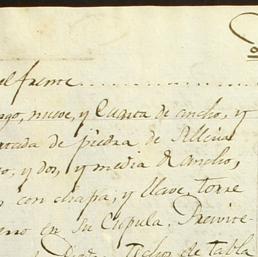 al frente
rgo, nueve, y Cuarta de ancho, y
rotada de piedra de Silleria
o, y dos, y media de ancho,
s con chapa, y llave, torre
erro en su Cupula. Previte-
Techos de tabla